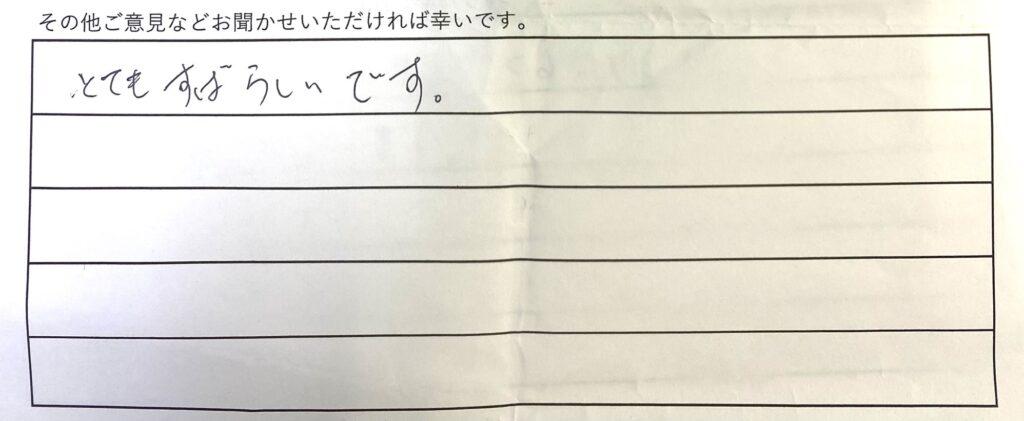 その他ご意見などお聞かせいただければ幸いです。
とてもすばらしいです。